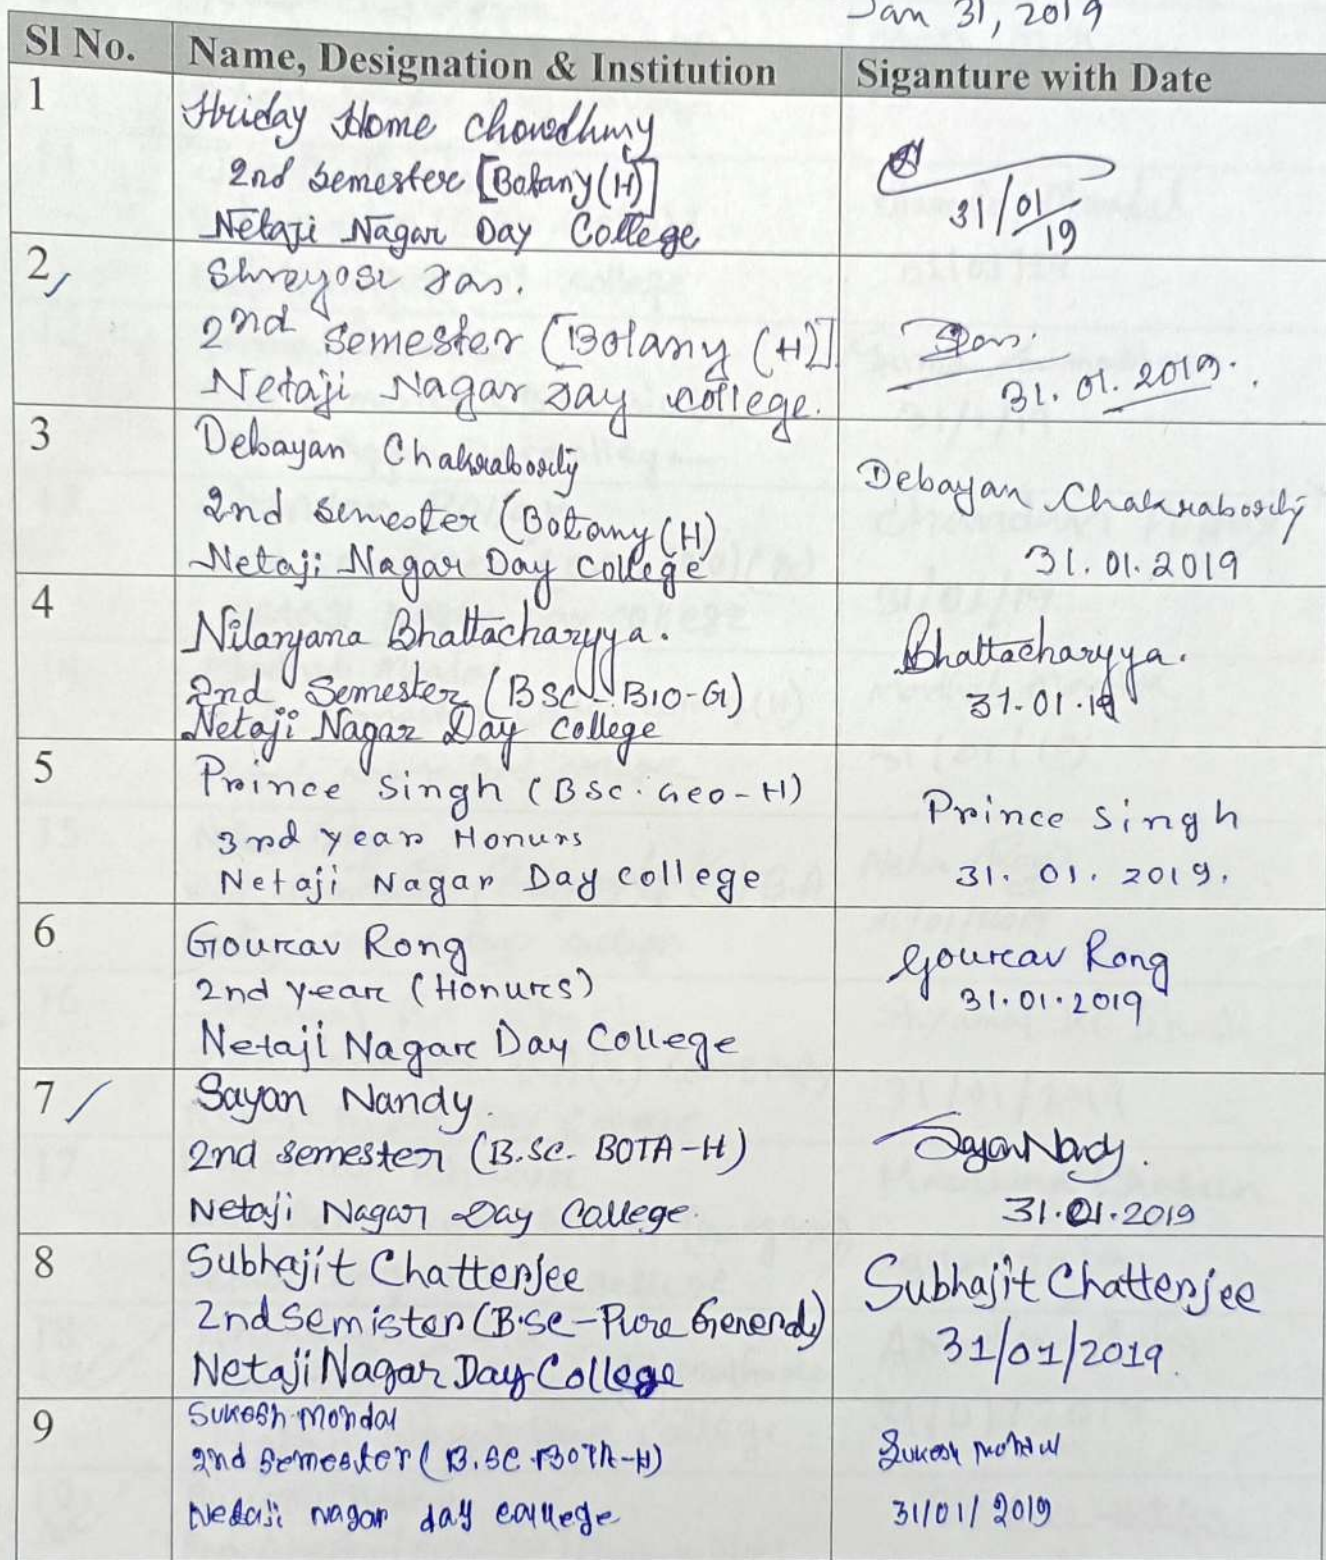 Jan 31, 2019
Sl No. Name, Designation & Institution Siganture with Date
1
Hriday Home Chowdhury
2nd Semester [Botany (H)]
Netaji Nagar Day College
31/01/19
2
Shreyosi Das.
2nd Semester [Botany (H)]
Netaji Nagar Day College.
Das.
31.01.2019.
3
Debayan Chakraborty
2nd Semester (Botany (H)
Netaji Nagar Day College
Debayan Chakraborty
31.01.2019
4
Nilanjana Bhattacharyya.
2nd Semester (BSC - BIO-G)
Netaji Nagar Day College
Bhattacharyya.
31.01.19
5
Prince Singh (BSC. Geo-H)
3rd Year Honurs
Netaji Nagar Day College
Prince Singh
31.01.2019.
6
Gourav Rong
2nd Year (Honurs)
Netaji Nagar Day College
Gourav Rong
31.01.2019
7
Sayan Nandy.
2nd Semester (B.SC. BOTA-H)
Netaji Nagar Day College.
Sayan Nandy.
31.01.2019
8
Subhajit Chatterjee
2nd Semister (B.Sc-Pure General)
Netaji Nagar Day College
Subhajit Chatterjee
31/01/2019.
9
Sukesh Mondal
2nd Semester (B.SC BOTA-H)
Netaji nagar day college
Sukesh Mondal
31/01/2019